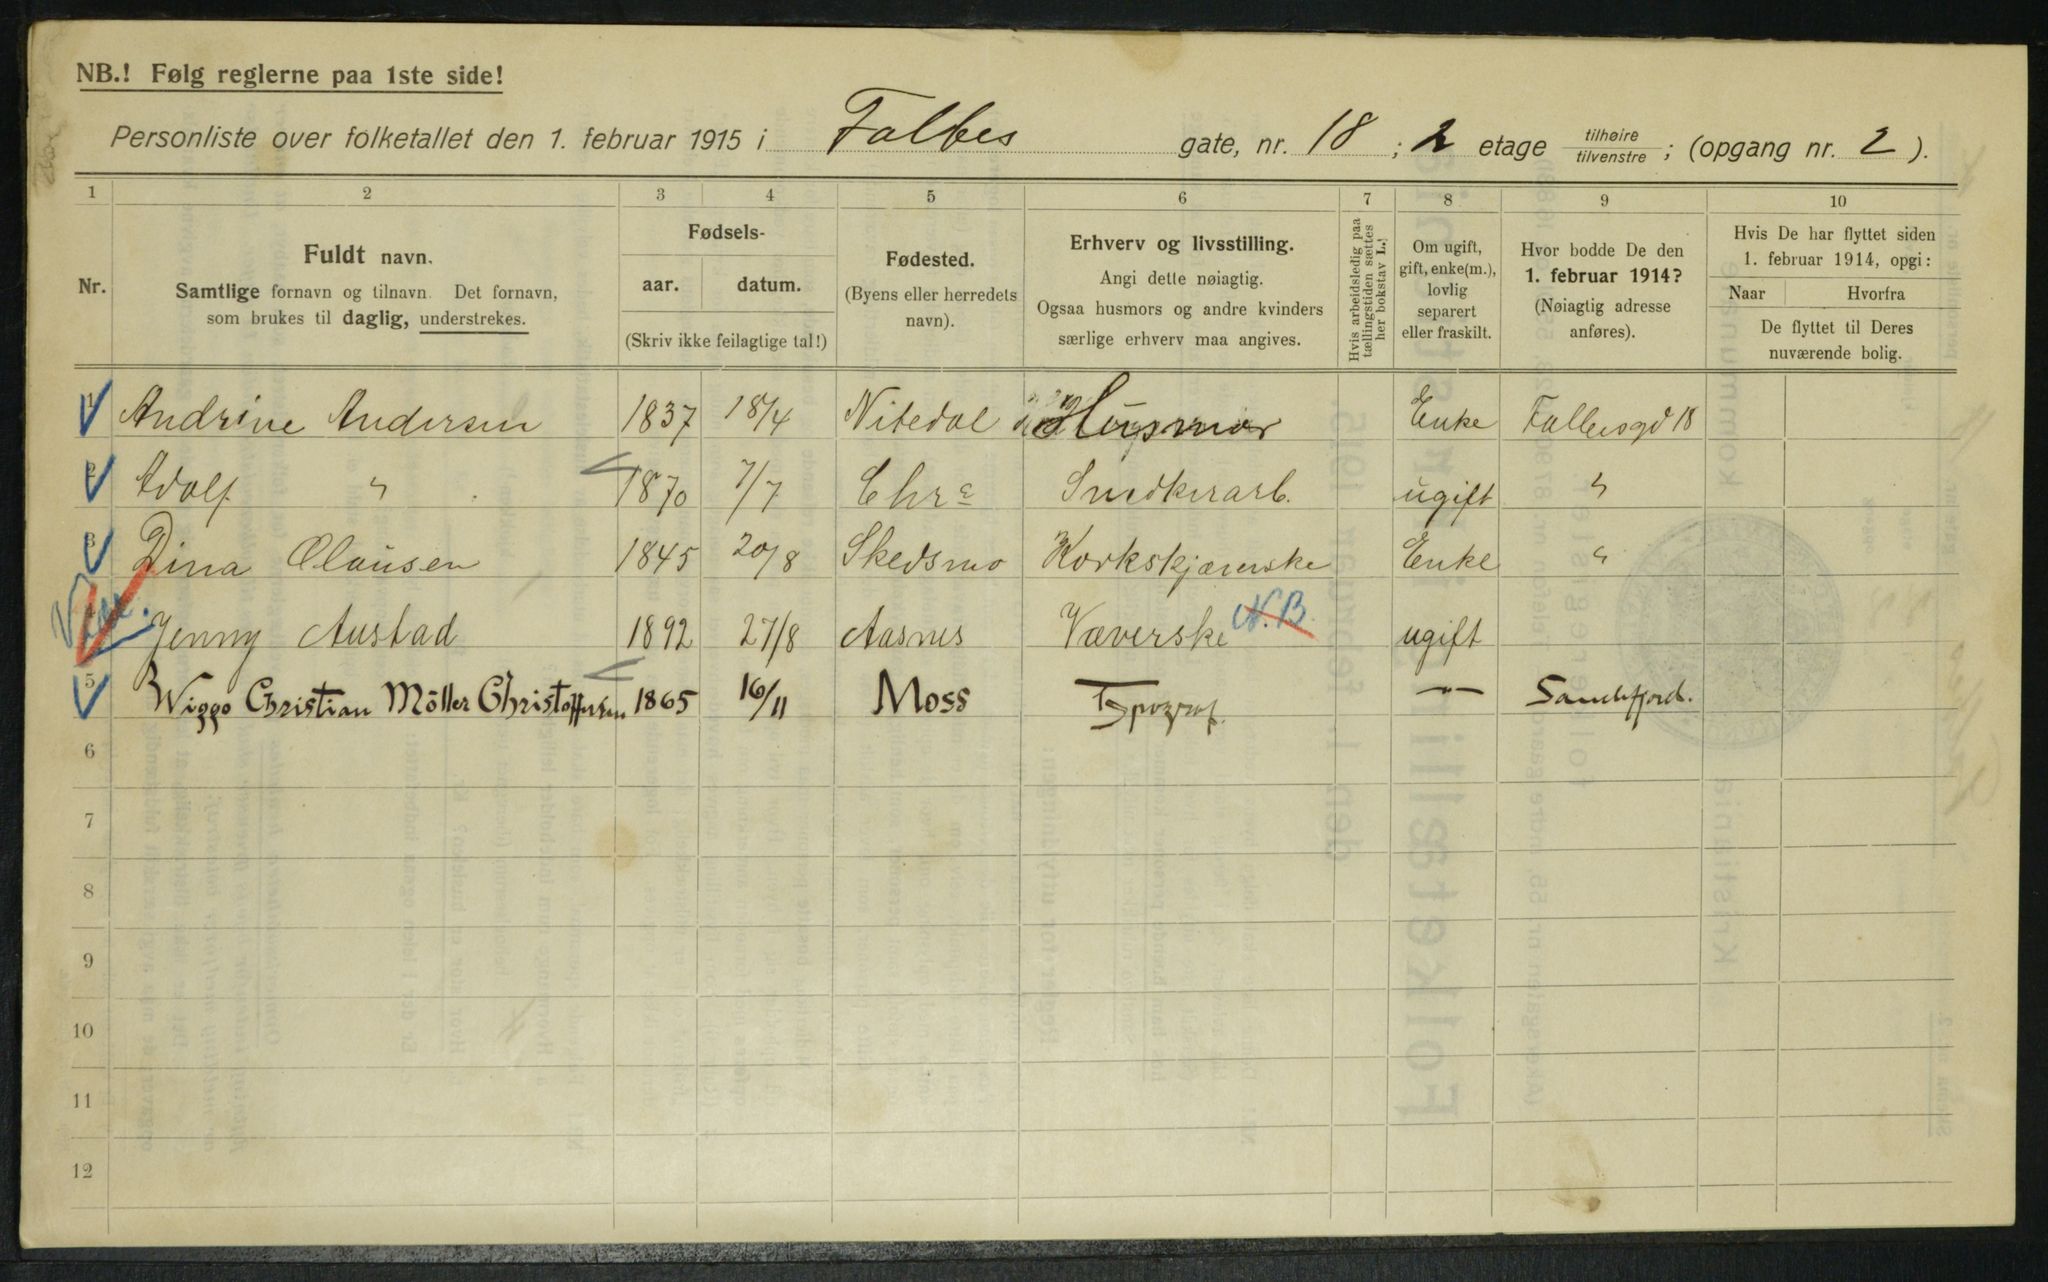 NB.! Følg reglerne paa 1ste side!
Personliste over folketallet den 1. februar 1915 i Falbes gate, nr. 18 ; 2 etage tilhøire / tilvenstre ; (opgang nr. 2 ).
1 2 3 4 5 6 7 8 9 10
Nr.
Fuldt navn.
Samtlige fornavn og tilnavn. Det fornavn,
som brukes til daglig, understrekes.
Fødsels-
aar. datum.
(Skriv ikke feilagtige tal!)
Fødested.
(Byens eller herredets
navn).
Erhverv og livsstilling.
Angi dette nøiagtig.
Ogsaa husmors og andre kvinders
særlige erhverv maa angives.
Hvis arbeidsledig paa
tællingstiden sættes
her bokstav L.!
Om ugift,
gift, enke(m.),
lovlig
separert
eller fraskilt.
Hvor bodde De den
1. februar 1914?
(Nøiagtig adresse
anføres).
Hvis De har flyttet siden
1. februar 1914, opgi:
Naar Hvorfra
De flyttet til Deres
nuværende bolig.
1 Andrine Andersen 1837 18/4 Nitedal Husmor Enke Falbesgd 18
2 Adolf " 1870 7/7 Chr a Snedkerarb. ugift "
3 Dina Clausen 1845 20/8 Skedsmo Korkskjærerske Enke "
4 Jenny Austad 1892 27/8 Aasnes Væverske N.B. ugift
5 Wiggo Christian Möller Christoffersen 1865 16/11 Moss Typograf. — Sandefjord.
6
7
8
9
10
11
12